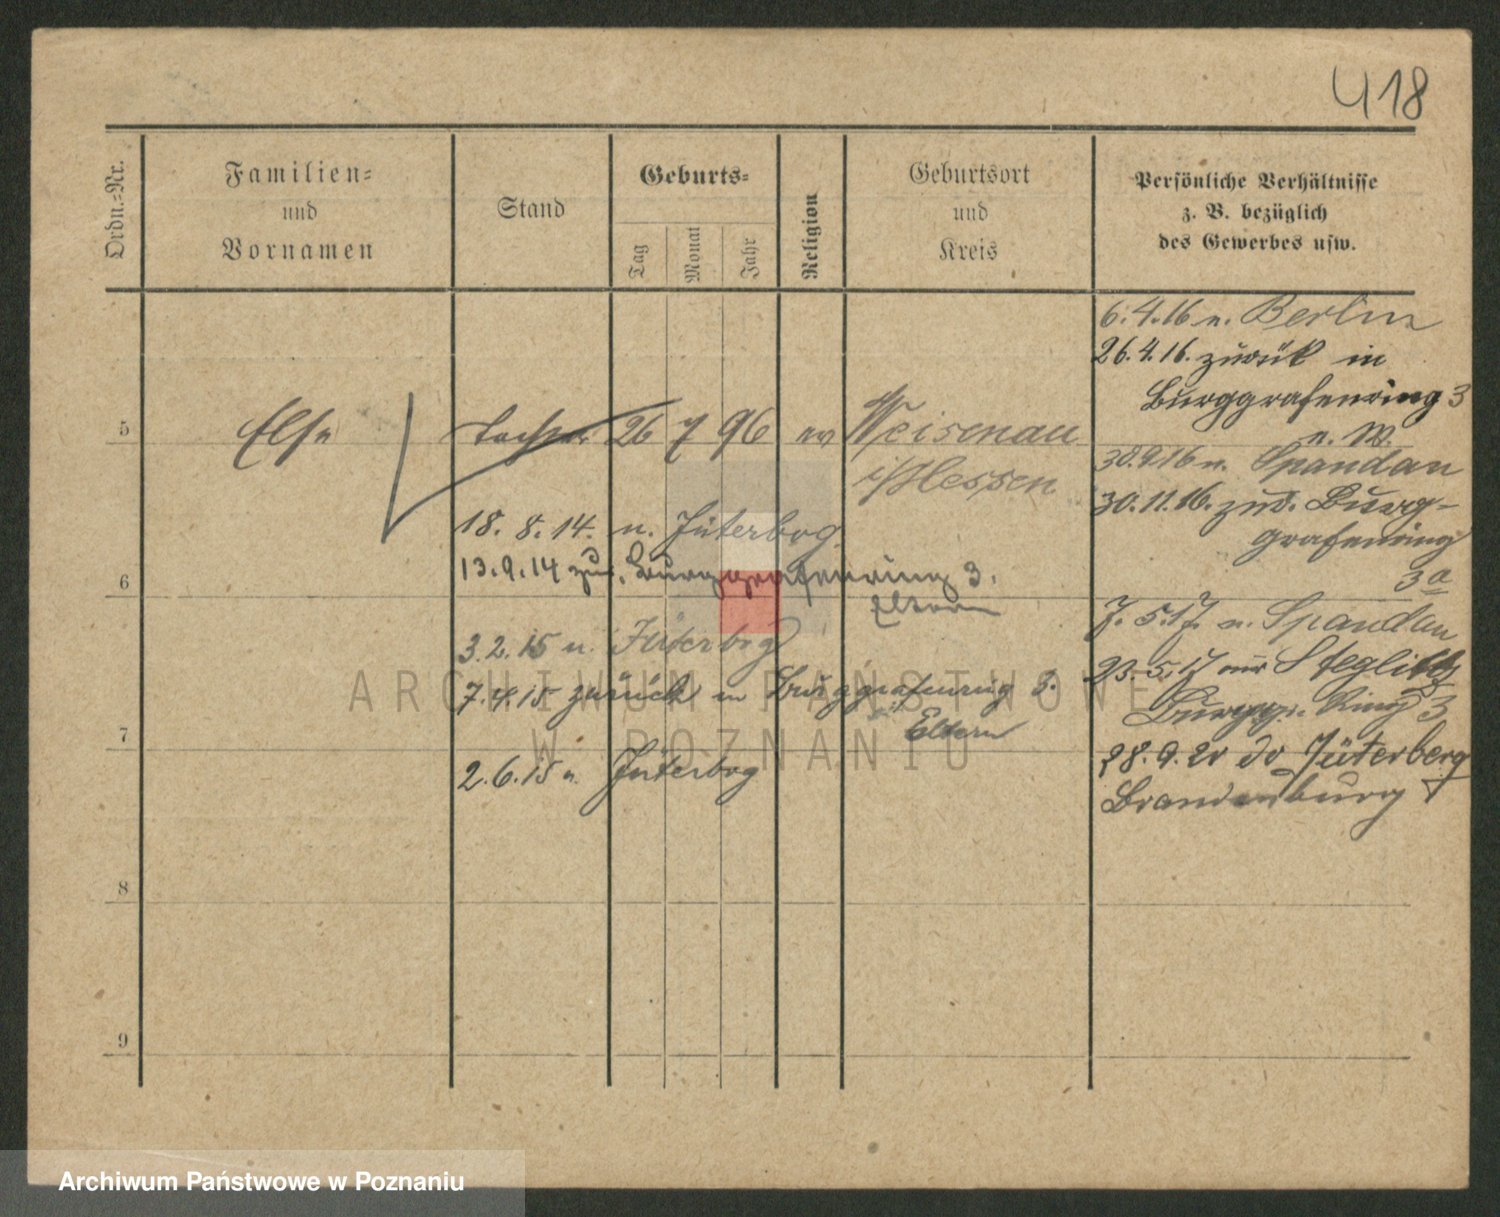 418
Ordn.-Nr.
Familien-
und
Vornamen
Stand
Geburts-
Tag
Monat
Jahr
Religion
Geburtsort
und
Kreis
Persönliche Verhältnisse
z. B. bezüglich
des Gewerbes usw.
5
Else
Tochter
26 7 96
ev
Weisenau
i/Hessen
18. 8. 14. n. Jüterbog
13. 9. 14 zur. Burggrafenring 3.
Eltern
3. 2. 15 n. Jüterbog
7. 4. 15 zurück in Burggrafenring 3.
Eltern
2. 6. 15 n. Jüterbog
6. 4. 16 n. Berlin
26. 4. 16. zurück in
Burggrafenring 3
n. W.
30. 9. 16 n. Spandau
30. 11. 16. zur. Burg-
grafenring
3a
7. 5. 17. n. Spandau
23. 5. 17 Steglitz
Burggr. Ring 3
28. 9. 20 Jüterberg
Brandenburg
6
7
8
9
ARCHIWUM PAŃSTWOWE
W POZNANIU
Archiwum Państwowe w Poznaniu